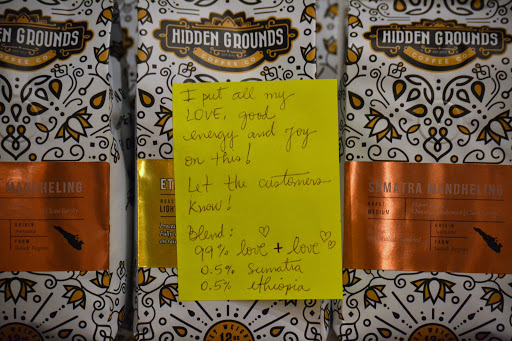 HIDDEN GROUNDS
COFFEE CO.
HIDDEN GROUNDS
COFFEE CO.
HIDDEN GROUNDS
COFFEE CO.
I put all my
LOVE, good
energy and joy
on this!
Let the customers
know!
Blend:
99% love + love
0.5% Sumatra
0.5% ethiopia
MANDHELING
ORIGIN
FARM
ET
ROAST
LIGHT
SUMATRA MANDHELING
ROAST
MEDIUM
ORIGIN
FARM
NET WEIGHT
12oz
12oz